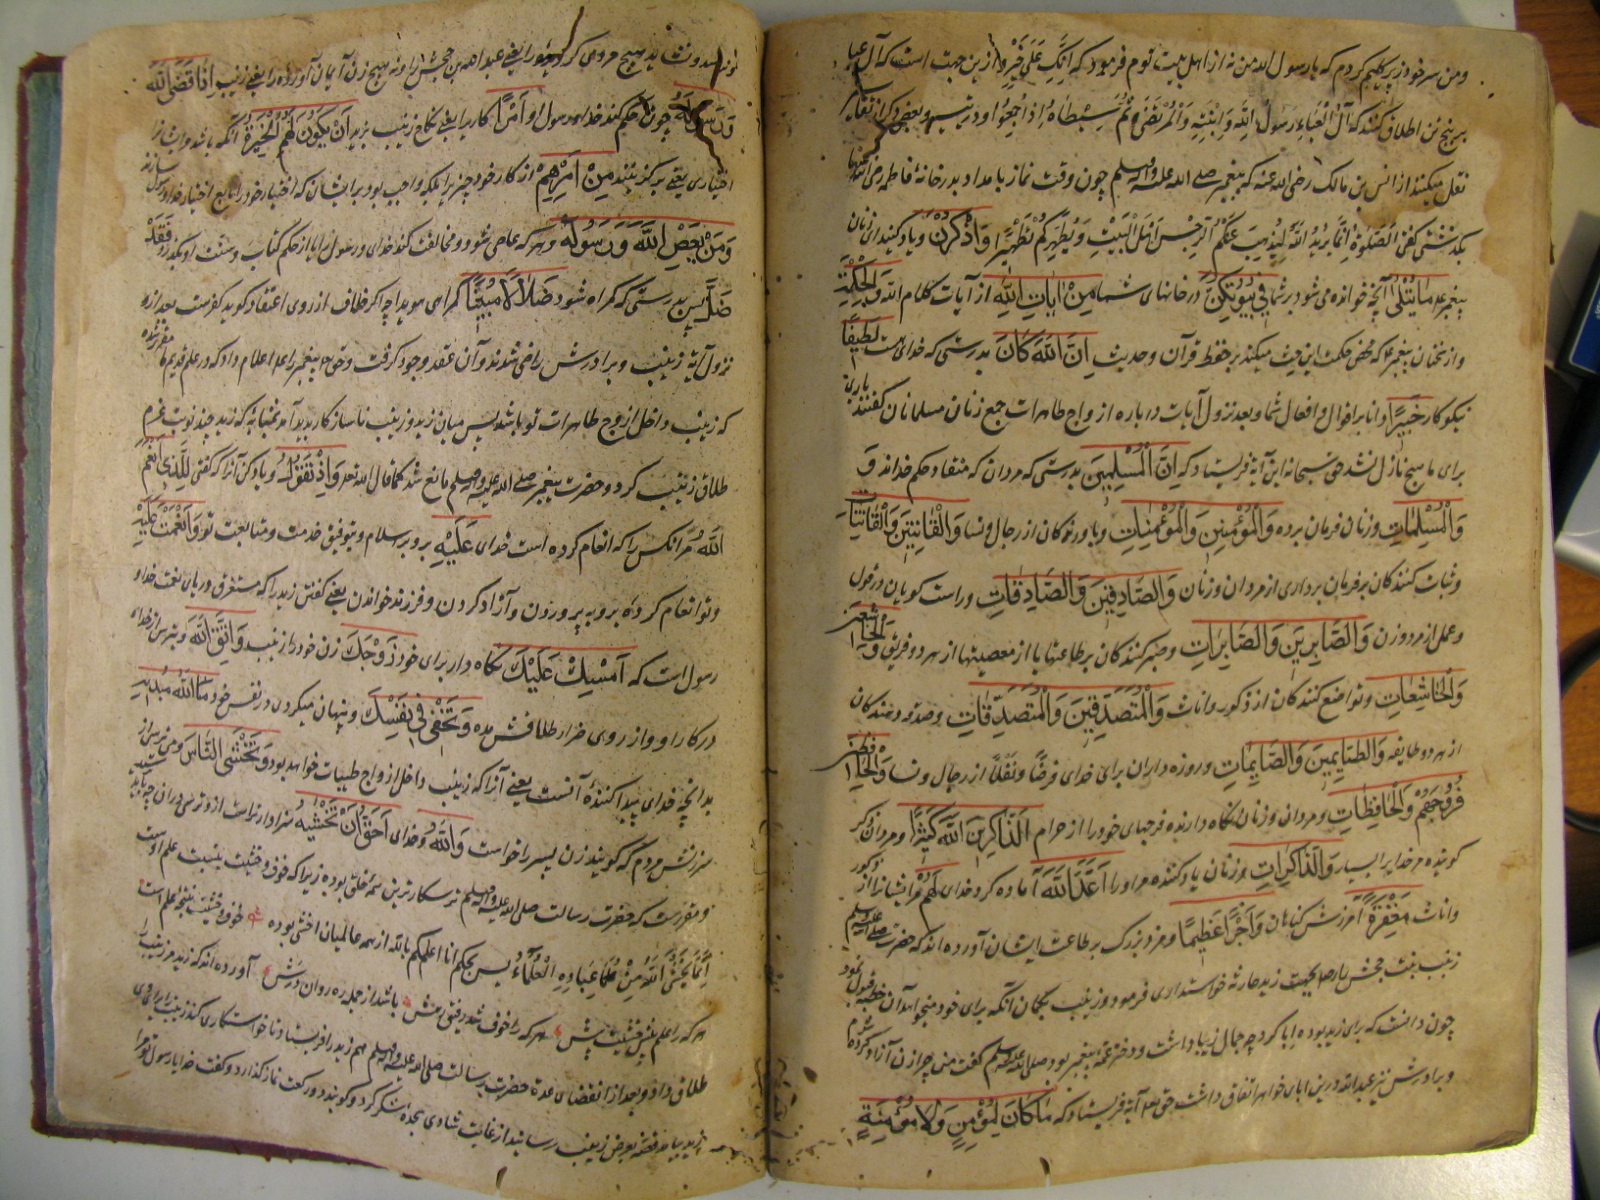 ومن سر خود زیر گلیم کردم که یا رسول الله من نه از اهل بیت توم فرمود که انک علی خیر و ازین جهت است که آل عبا
بر پنج تن اطلاق کنند که آل العباء رسول الله وابنته والمرتضی ثم سبطاه اذا اجمعوا و در تیسیر و بعضی دیگر از تفاسیر
نقل میکنند از انس بن مالک رضی الله عنه که پیغمبر صلی الله علیه وسلم چون وقت نماز بامداد بدر خانهٔ فاطمه رضی الله عنها
بگذشتی گفتی الصلوة انما یرید الله لیذهب عنکم الرجس اهل البیت ویطهرکم تطهیرا وَاذْكُرْنَ و یاد کنید ای زنان
پیغمبر علم مَا يُتْلَىٰ آنچه خوانده می شود بر شما فِي بُيُوتِكُنَّ در خانهای شما مِنْ آيَاتِ اللَّهِ از آیات کلام الله وَالْحِكْمَةِ
و از سخنان پیغمبر که حکمت این میکند بر حفظ قرآن و حدیث إِنَّ اللَّهَ كَانَ بدرستی که خدای هست لَطِيفًا
نیکو کار خَبِيرًا دانا بر اقوال و افعال شما و بعد نزول آیات درباره ازواج طاهرات جمع زنان مسلمانان گفتند باری
برای ما هیچ نازل نشد حق سبحانه این آیة فرستاد که إِنَّ الْمُسْلِمِينَ بدرستی که مردان که منقاد حکم خداند وَ
وَالْمُسْلِمَاتِ و زنان فرمان برده وَالْمُؤْمِنِينَ وَالْمُؤْمِنَاتِ و باور کنندگان از رجال و نسا وَالْقَانِتِينَ وَالْقَانِتَاتِ
و ثبات کنندگان بر فرمان برداری از مردان و زنان وَالصَّادِقِينَ وَالصَّادِقَاتِ و راست گویان در قول
و عمل از مرد و زن وَالصَّابِرِينَ وَالصَّابِرَاتِ و صبر کنندگان بر طاعتها یا از معصیتها از هر دو فریق وَالْخَاشِعِينَ
وَالْخَاشِعَاتِ و تواضع کنندگان از ذکور و اناث وَالْمُتَصَدِّقِينَ وَالْمُتَصَدِّقَاتِ و صدقه دهندگان
از هر دو طایفه وَالصَّائِمِينَ وَالصَّائِمَاتِ و روزه داران برای خدای فرضًا و نفلًا از رجال و نسا وَالْحَافِظِينَ
فُرُوجَهُمْ وَالْحَافِظَاتِ و مردان و زنان نگاه دارنده فرجهای خود را از حرام الذَّاكِرِينَ اللَّهَ كَثِيرًا و مردان ذکر
گوینده مر خدایرا بسیار وَالذَّاكِرَاتِ و زنان یاد کننده مر او را أَعَدَّ اللَّهُ آماده کرد خدای لَهُمْ مر ایشانرا از ذکور
و اناث مَغْفِرَةً آمرزش گناهان وَأَجْرًا عَظِيمًا و مزد بزرگ بر طاعت ایشان آورده اند که حضرت صلی الله علیه وسلم
زینب بنت جحش را بجهت زید حارثه خواستداری فرمود و زینب بگمان آنکه برای خود میخواهد آن خطبه قبول نمود
چون دانست که برای زید بوده ابا کرد چه جمال زیبا داشت و دختر عمه پیغمبر بود صلی الله علیه وسلم گفت من چرا زن آزاد کرده شوم
و برادرش نیز عبدالله درین ابا با خواهر اتفاق داشت حق تعم آیة فرستاد که مَا كَانَ لِمُؤْمِنٍ وَلَا مُؤْمِنَةٍ
هیچ مردی گرویده را یعنی عبدالله بن جحش را و نه هیچ زن ایمان آورده را یعنی زینب را إِذَا قَضَى اللَّهُ
وَرَسُولُهُ چون حکم کند خدا و رسول او أَمْرًا کاریرا یعنی نکاح زینب بزید أَن يَكُونَ لَهُمُ الْخِيَرَةُ آنکه باشد ایشانرا
اختیاری یعنی برگزینند مِنْ أَمْرِهِمْ از کار خود چیزیرا بلکه واجب بود بر ایشان که اختیار خود را تابع اختیار خدا و رسول سازند
وَمَنْ يَعْصِ اللَّهَ وَرَسُولَهُ و هر که عاصی شود و مخالفت کند خدای و رسول او را یا از حکم کتاب و سنت او بگذرد فَقَدْ
ضَلَّ پس بدرستی که گمراه شود ضَلَالًا مُبِينًا گمراهی هویدا چه اگر خلاف از روی اعتقاد گوید کفرست بعد از
نزول آیة زینب و برادرش راضی شدند و آن عقد وجود گرفت و حق تعم پیغمبر را اعلام داد که در علم قدیم ما مقرر شده
که زینب داخل ازواج طاهرات تو باشد پس میان زید و زینب ناسازکاری پدید آمد بمثابه که زید چند نوبت عزم
طلاق زینب کرد و حضرت پیغمبر صلی الله علیه وسلم مانع شد کما قال الله تعم وَإِذْ تَقُولُ و یاد کن آنرا که گفتی لِلَّذِي أَنْعَمَ
اللَّهُ مر آنکس را که انعام کرده است خدای عَلَيْهِ برو بر اسلام و توفیق خدمت و متابعت تو وَأَنْعَمْتَ عَلَيْهِ
و تو انعام کرده برو به پروردن و آزاد کردن و فرزند خواندن یعنی گفتی زید را که مستغرق دریای نعمت خدا و
رسول است که أَمْسِكْ عَلَيْكَ نگاه دار برای خود زَوْجَكَ زن خود را زینب وَاتَّقِ اللَّهَ و بترس از خدای
در کار او و از روی ضرار طلاقش مده وَتُخْفِي فِي نَفْسِكَ و پنهان میکردی در نفس خود مَا اللَّهُ مُبْدِيهِ
بدانچه خدای پیدا کنندهٔ آنست یعنی آنرا که زینب داخل ازواج طیبات خواهد بود وَتَخْشَى النَّاسَ و می ترسی از
سرزنش مردم که گویند زن پسر را خواست وَاللَّهُ و خدای أَحَقُّ أَنْ تَخْشَاهُ سزاوارتراست از و ترسی
و مقررست که حضرت رسالت صلی الله علیه وسلم ترسکارترین همه خلق بوده زیرا که خوف و خشیت نتیجه علم است
إِنَّمَا يَخْشَى اللَّهَ مِنْ عِبَادِهِ الْعُلَمَاءُ پس بحکم انا اعلمکم بالله از همه عالمیان اخشی بوده
هر که را علم پیش خشیت بیش هر که را خوف شد رفیق رهش باشد از جمله ره روان در پیش آورده اند که زید مر زینب را
طلاق داد و بعد از انقضای عدة حضرت رسالت صلی الله علیه وسلم هم زید را فرستاد تا خواستکاری کند زینب را برای وی
زید بیامد قصه بعرض زینب رسانید از غایت شادی سجدهٔ شکر کرد و گویند دو رکعت نماز گذارد و گفت خدایا رسول تو مرا